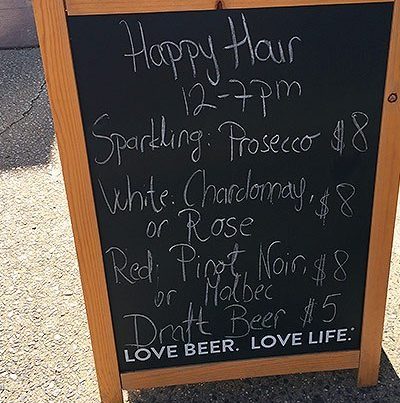 Happy Hour
12-7pm
Sparkling: Prosecco $8
White: Chardonnay, $8
or Rose
Red: Pinot Noir, $8
or Malbec
Draft Beer $5
LOVE BEER. LOVE LIFE.